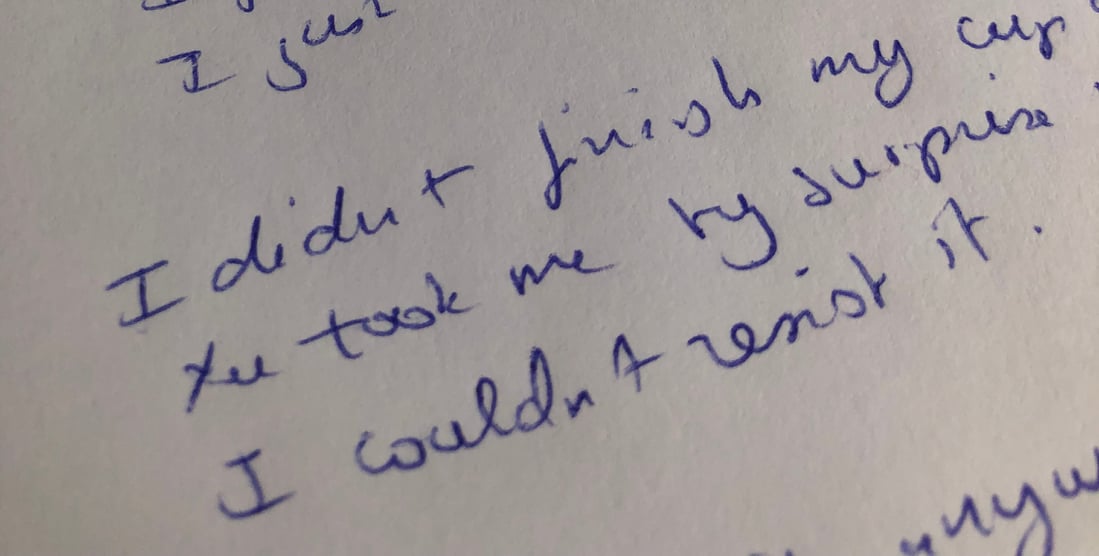 I just
I didn't finish my cup
took me by surprise
I couldn't resist it.